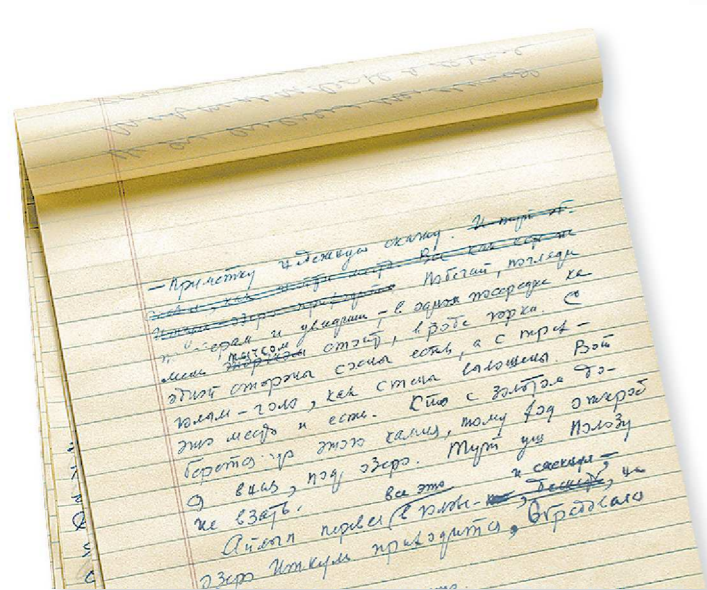 — Приметку надежную скажу. И тут об-
Побегай, погляди
по озерам и увидишь, — в одном посередке ка
мень тычком стоит, вроде горки. С
одной стороны сосны есть, а с трех —
голым-голо, как стены выложены. Вот
это место и есть. Кто с золотом до-
берется до этого камня, тому ход откроет
вниз, под озеро. Тут уж Полозу
не взять.
все это и смекает, —
Айлып перевел в голове, на
озеро Иткуль приходится, Обрадовался